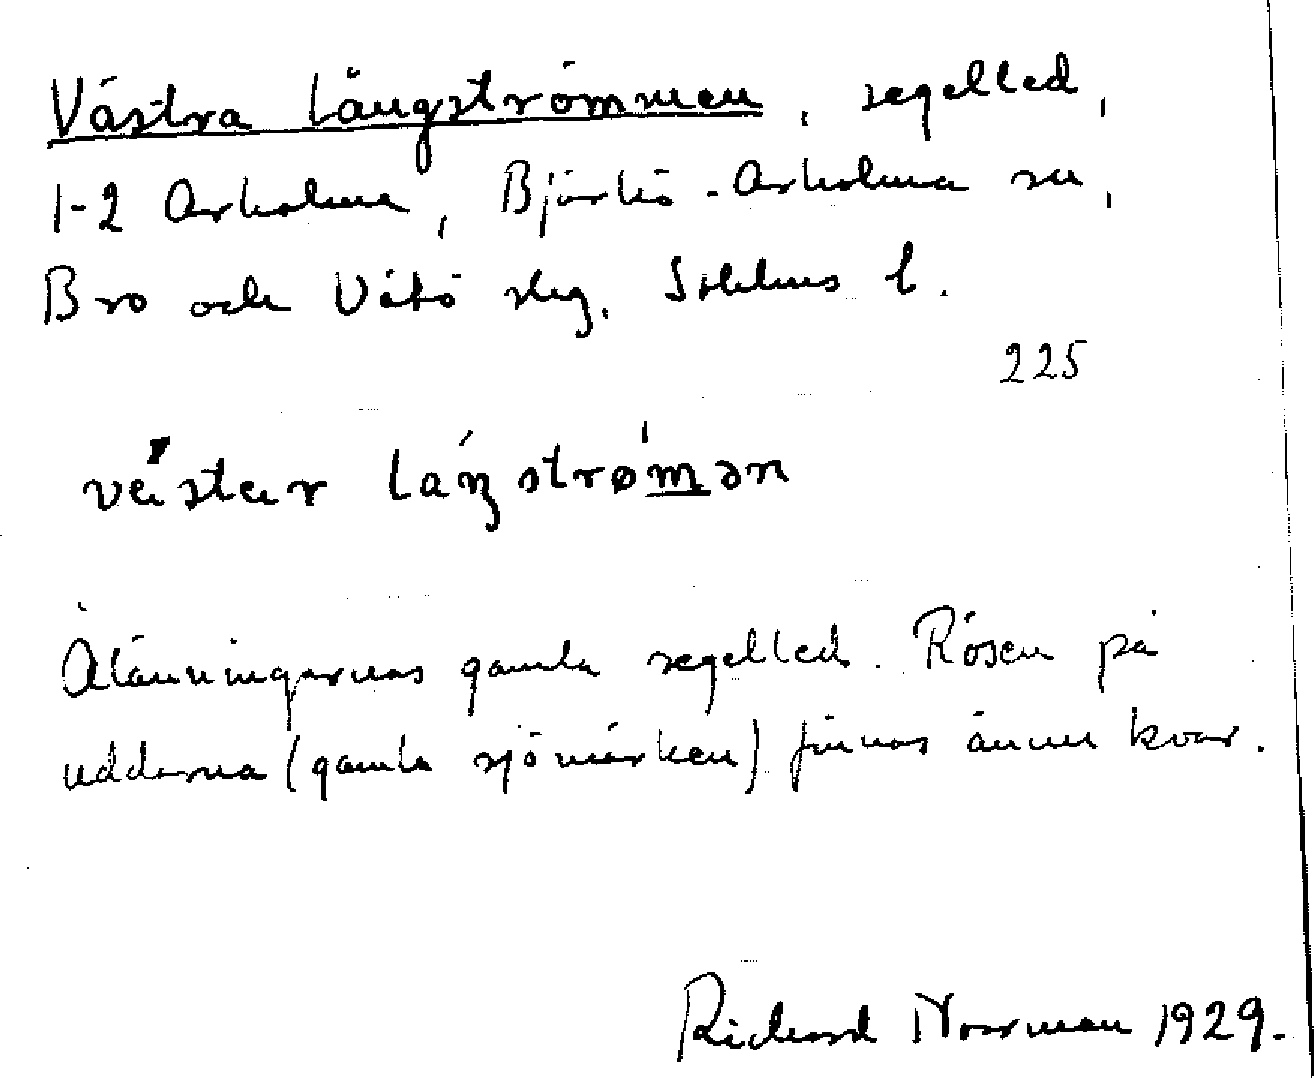 Västra Långströmmen, segelled,
1-2 Arholma, Björkö-Arholma sn,
Bro och Vätö slg. Sthlms l.
225
västar låŋstrømən
Ålänningarnas gamla segelled. Rösen på
uddarna (gamla sjömärken) finnas ännu kvar.
Richard Norrman 1929.